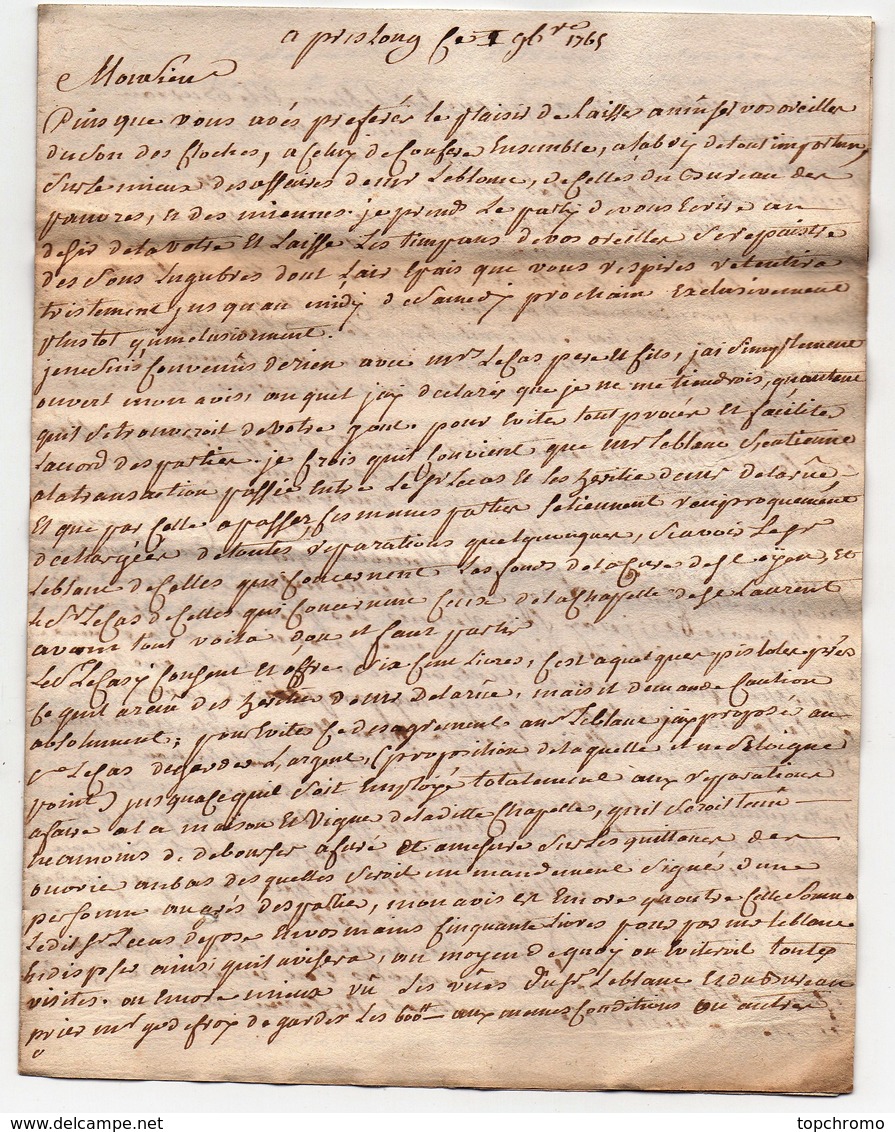 a prislong ce 1 9bre 1765
Monsieur
Puis que vous avés preferés le plaisir de laisser amuser vos oreilles
du son des Cloches, a Celuy de Conferer Ensemble, a labry de tout importun,
sur le mieux des affaires de mr Leblanc, de Celles du Bureau des
pauvres, et des miennes. je prends Le party de vous Ecrire au
desir de la votre Et Laisse Les timpans de vos oreilles se repaistre
des sons Lugubres dont Lair Epais que vous respirés retentira
tristement, jusquau midy de Samedy prochain Exclusivement
plustot qu'inclusivement.
je ne suis Convenus de rien avec mrs Lecas pere Et fils, j'ai simplement
ouvert mon avis, auquel jay declaré que je ne me tiendrois, quautant
quil se trouveroit de votre gout. pour Eviter tout procés Et faciliter
Laccord des parties. je Crois quil Convient que mr Leblanc sen tienne
a la transaction passée Entre Le Sr Lecas Et les heritiers de mr Delarüe
Et que par Celle a passer, ces memes parties se tiennent reciproquement
dechargées de toutes reparations quelquonques, Scavoir Le Sr
Leblanc de Celles qui Concernent Les fonds de la Cure de St Eyon, Et
le Sr Le Cas de Celles qui Concernent Ceux de la Chapelle de St Laurent
avant tout voila dou il faut partir
Le Sr Le Cas y Consent Et offre six Cent Livres, C'est a quelques pistoles prés
Ce quil a reçu des heritiers de mr Delarüe, mais il demande Caution
absolument; pour Eviter Ce desagrement a mr Leblanc jay proposé au
Sr Le Cas de garder Largent, (proposition de laquelle il ne seloigne
point) jusqua ce quil soit Employé totalement aux reparations
a faire a la maison Et Vigne de la ditte Chapelle, quil seroit tenu
neamoins de debourser a furé et amesure sur Les quittances des
ouvriers au bas desquelles seroit un mandement signé dune
personne au grés des parties, mon avis est Encore quoutre Cette Somme
Ledit Sr Lecas depose En vos mains Cinquante Livres pour par mr Leblanc
En disposer ainsi quil avisera, au moyen de quoy on Eviteroit toutes
visites. ou Encore mieux vû Les vües du Sr Leblanc Et du Bureau
prier mr de froy de garder Les 600tt aux memes Conditions ou autres